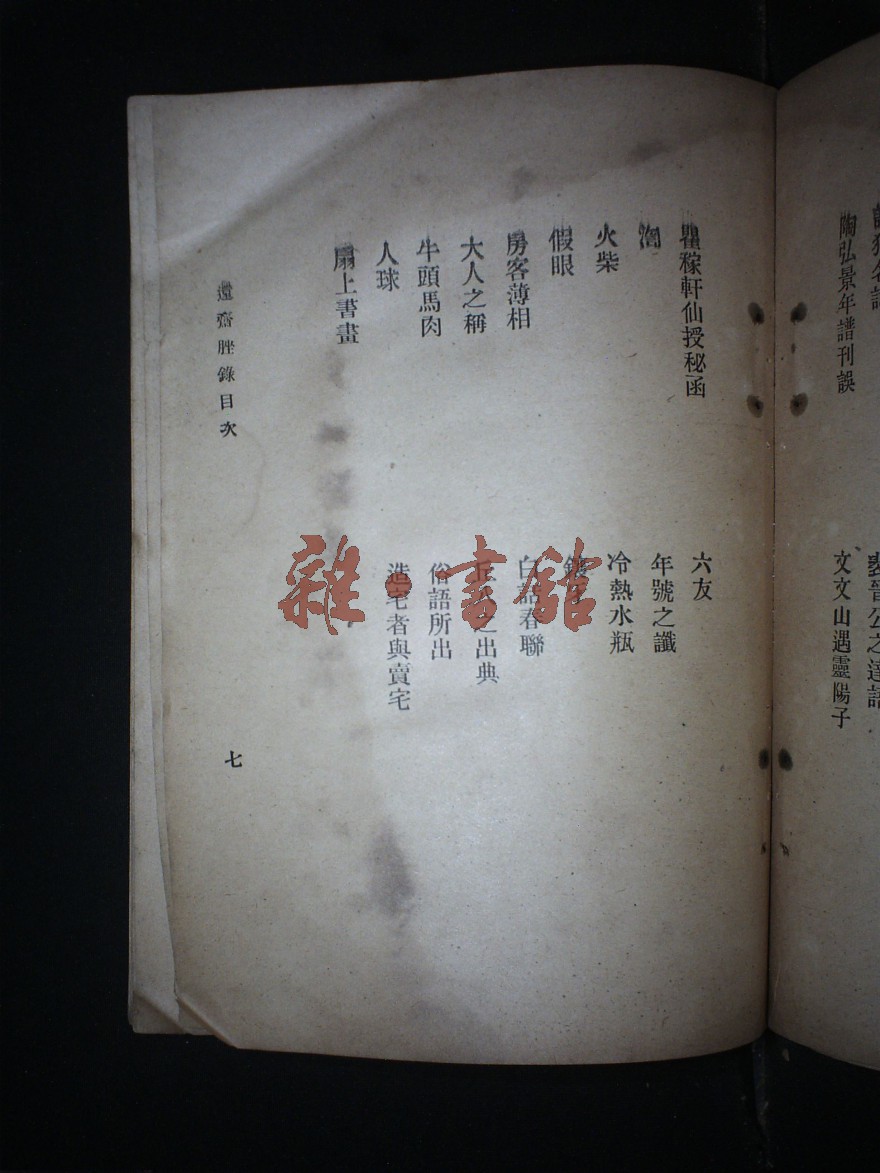 陶弘景年譜刊誤
文文山遇靈陽子
瞿稼軒仙授秘函
六友
年號之讖
火柴
冷熱水瓶
假眼
房客薄相
白話春聯
大人之稱
之出典
牛頭馬肉
俗語所出
人球
造宅者與賣宅
扇上書畫
齋脞錄目次
七
雜·書館